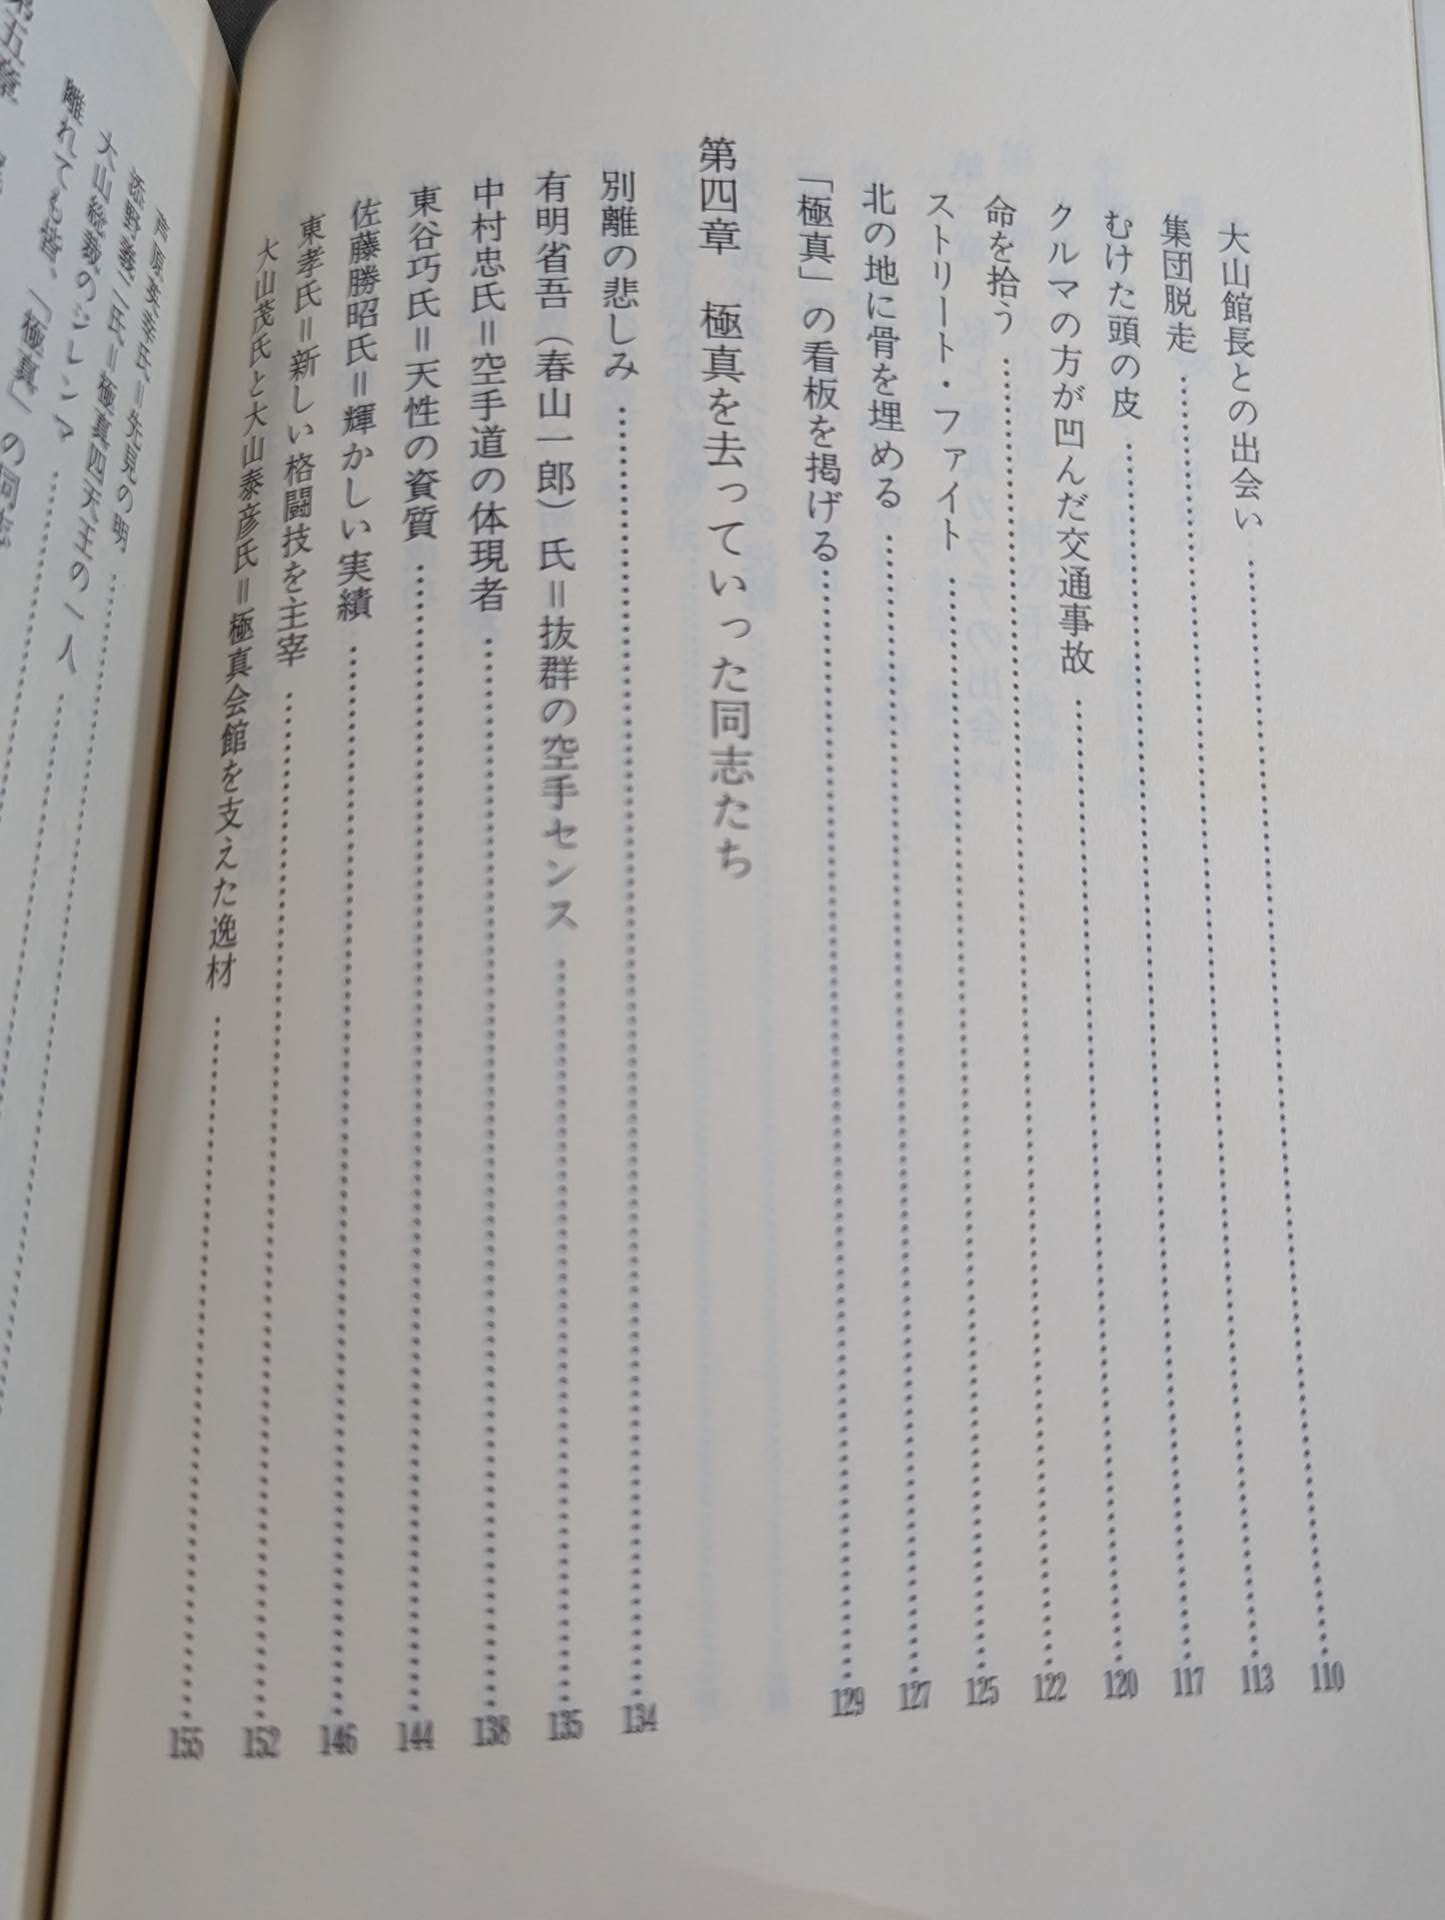 大山館長との出会い……110
集団脱走……113
むけた頭の皮……117
クルマの方が凹んだ交通事故……120
命を拾う……122
ストリート・ファイト……125
北の地に骨を埋める……127
「極真」の看板を掲げる……129
第四章 極真を去っていった同志たち
別離の悲しみ……134
有明省吾（春山一郎）氏＝抜群の空手センス……135
中村忠氏＝空手道の体現者……138
東谷巧氏＝天性の資質……144
佐藤勝昭氏＝輝かしい実績……146
東孝氏＝新しい格闘技を主宰……152
大山茂氏と大山泰彦氏＝極真会館を支えた逸材……155
芦原英幸氏＝先見の明……
添野義二氏＝極真四天王の一人……
大山総裁のジレンマ……
離れても皆、「極真」の同志
第五章